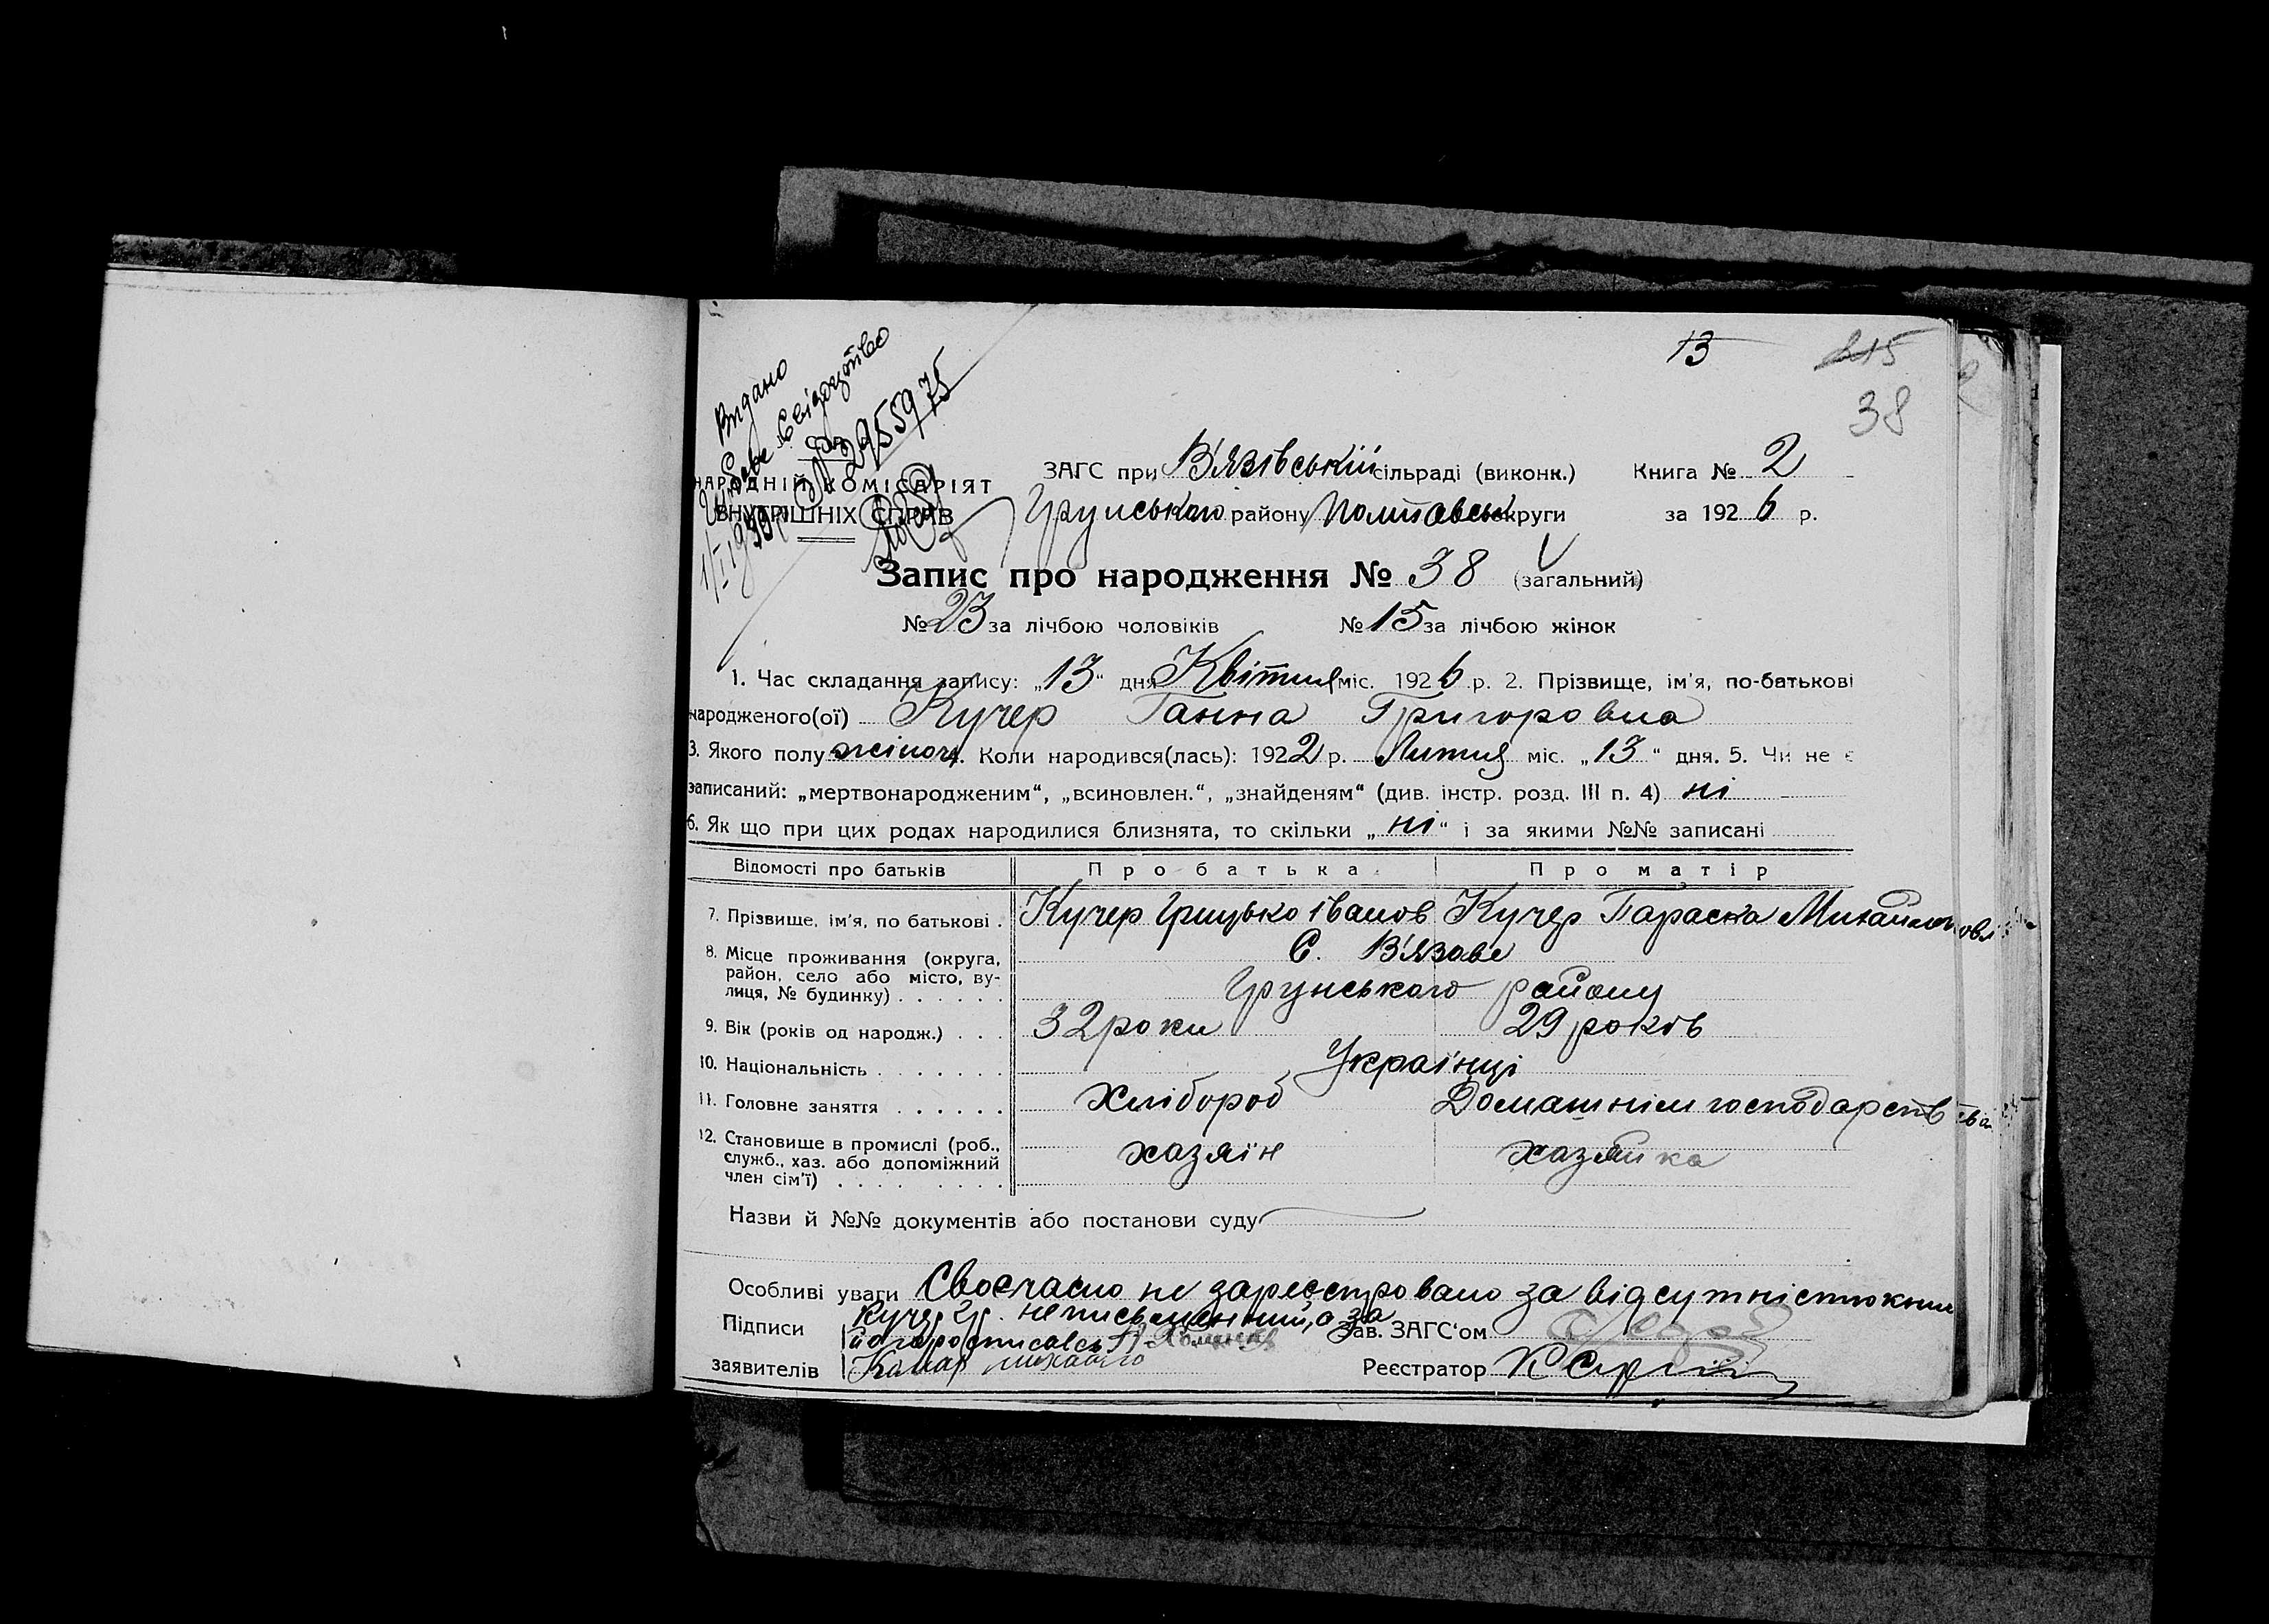 13
215
38
Видано
Свідоцтво
2955975
НАРОДНІЙ КОМІСАРІЯТ
ВНУТРІШНІХ СПРАВ
ЗАГС при В'язівській сільраді (виконк.) Книга № 2
Грунського району Полтавськ округи за 1926 р.
Запис про народження № 38 (загальний)
№ 23 за лічбою чоловіків № 15 за лічбою жінок
1. Час складання запису: „13“ дня Квітня міс. 1926 р. 2. Прізвище, ім'я, по-батькові
народженого(ої) Кучер Ганна Григоровна
3. Якого полу жіноч 4. Коли народився(лась): 1922 р. Лютня міс. „13“ дня. 5. Чи не є
записаний: „мертвонародженим“, „всиновлен.“, „знайденям“ (див. інстр. розд. III п. 4) ні
6. Як що при цих родах народилися близнята, то скільки „ні“ і за якими №№ записані
Відомості про батьків Про батька Про матір
7. Прізвище, ім'я, по батькові . Кучер Грицько Іванов Кучер Параска Михайловна
8. Місце проживання (округа, район, село або місто, вулиця, № будинку) . . . . . . С. В'язове
Грунського району
9. Вік (років од народж.) . . . 32 роки 29 років
10. Національність . . . . . . . Українці
11. Головне заняття . . . . . . Хлібороб Домашнім господарств
12. Становище в промислі (роб., служб., хаз. або допоміжний член сім'ї) . . . . . . . . . хазяїн хазяйка
Назви й №№ документів або постанови суду
Особливі уваги Своєчасно не зареєстровано за відсутністю книг
Підписи Кучер Гр. неписьменний, а за
його росписавсь Зав. ЗАГС'ом
заявителів Реєстратор